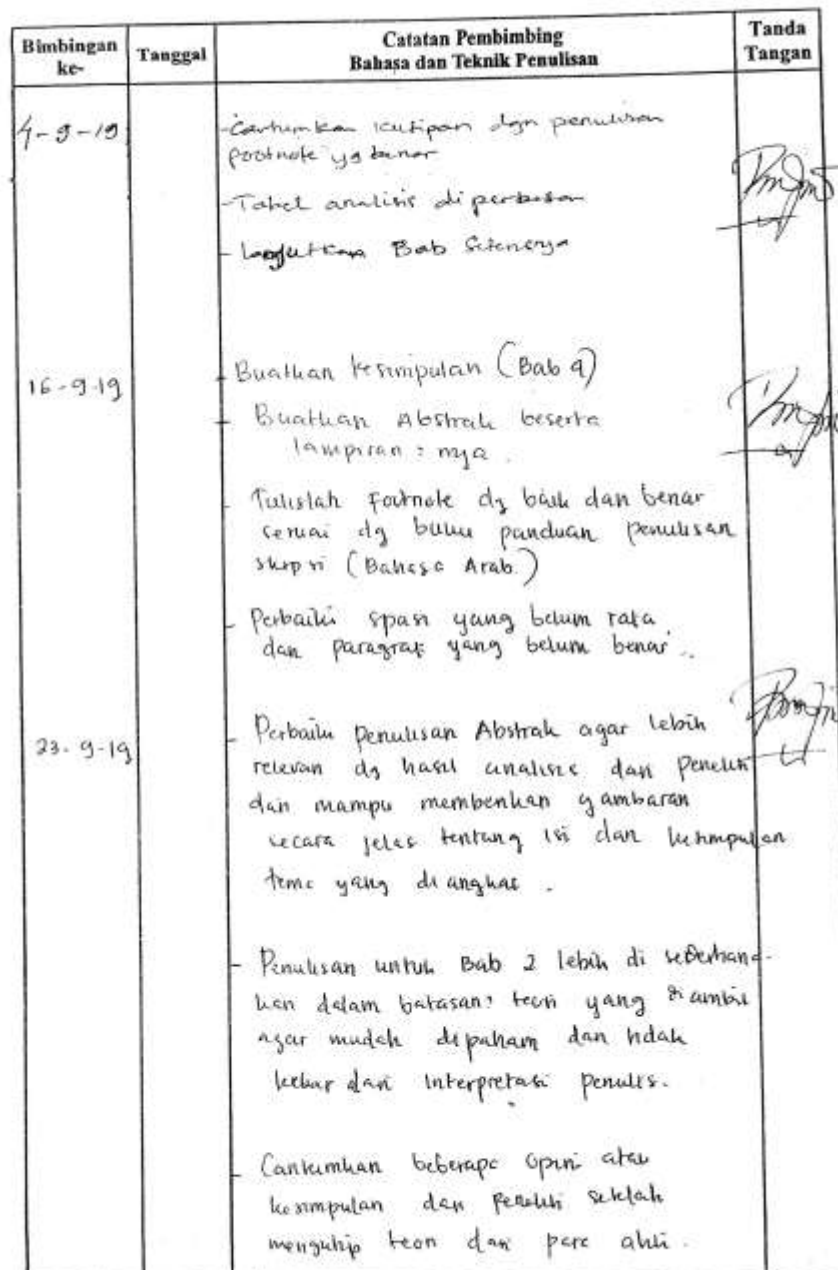 Bimbingan ke-
Tanggal
Catatan Pembimbing
Bahasa dan Teknik Penulisan
Tanda Tangan
4-9-19
- Cantumkan kutipan dgn penulisan
footnote yg benar
- Tabel analisis diperbesar
- Lanjutkan Bab
16-9-19
- Buatkan kesimpulan (Bab 4)
- Buatkan Abstrak beserta
lampiran2nya.
- Tulislah footnote dg baik dan benar
sesuai dg buku panduan penulisan
skripsi (Bahasa Arab)
- Perbaiki spasi yang belum rata
dan paragraf yang belum benar.
23-9-19
- Perbaiki penulisan Abstrak agar lebih
relevan dg hasil analisis dari peneliti
dan mampu memberikan gambaran
secara jelas tentang isi dan kesimpulan
tema yang diangkat.
- Penulisan untuk Bab 2 lebih di sederhana-
kan dalam batasan2 teori yang diambil
agar mudah dipaham dan tidak
keluar dari interpretasi penulis.
- Cantumkan beberapa opini atau
kesimpulan dari peneliti setelah
mengutip teori dari para ahli.